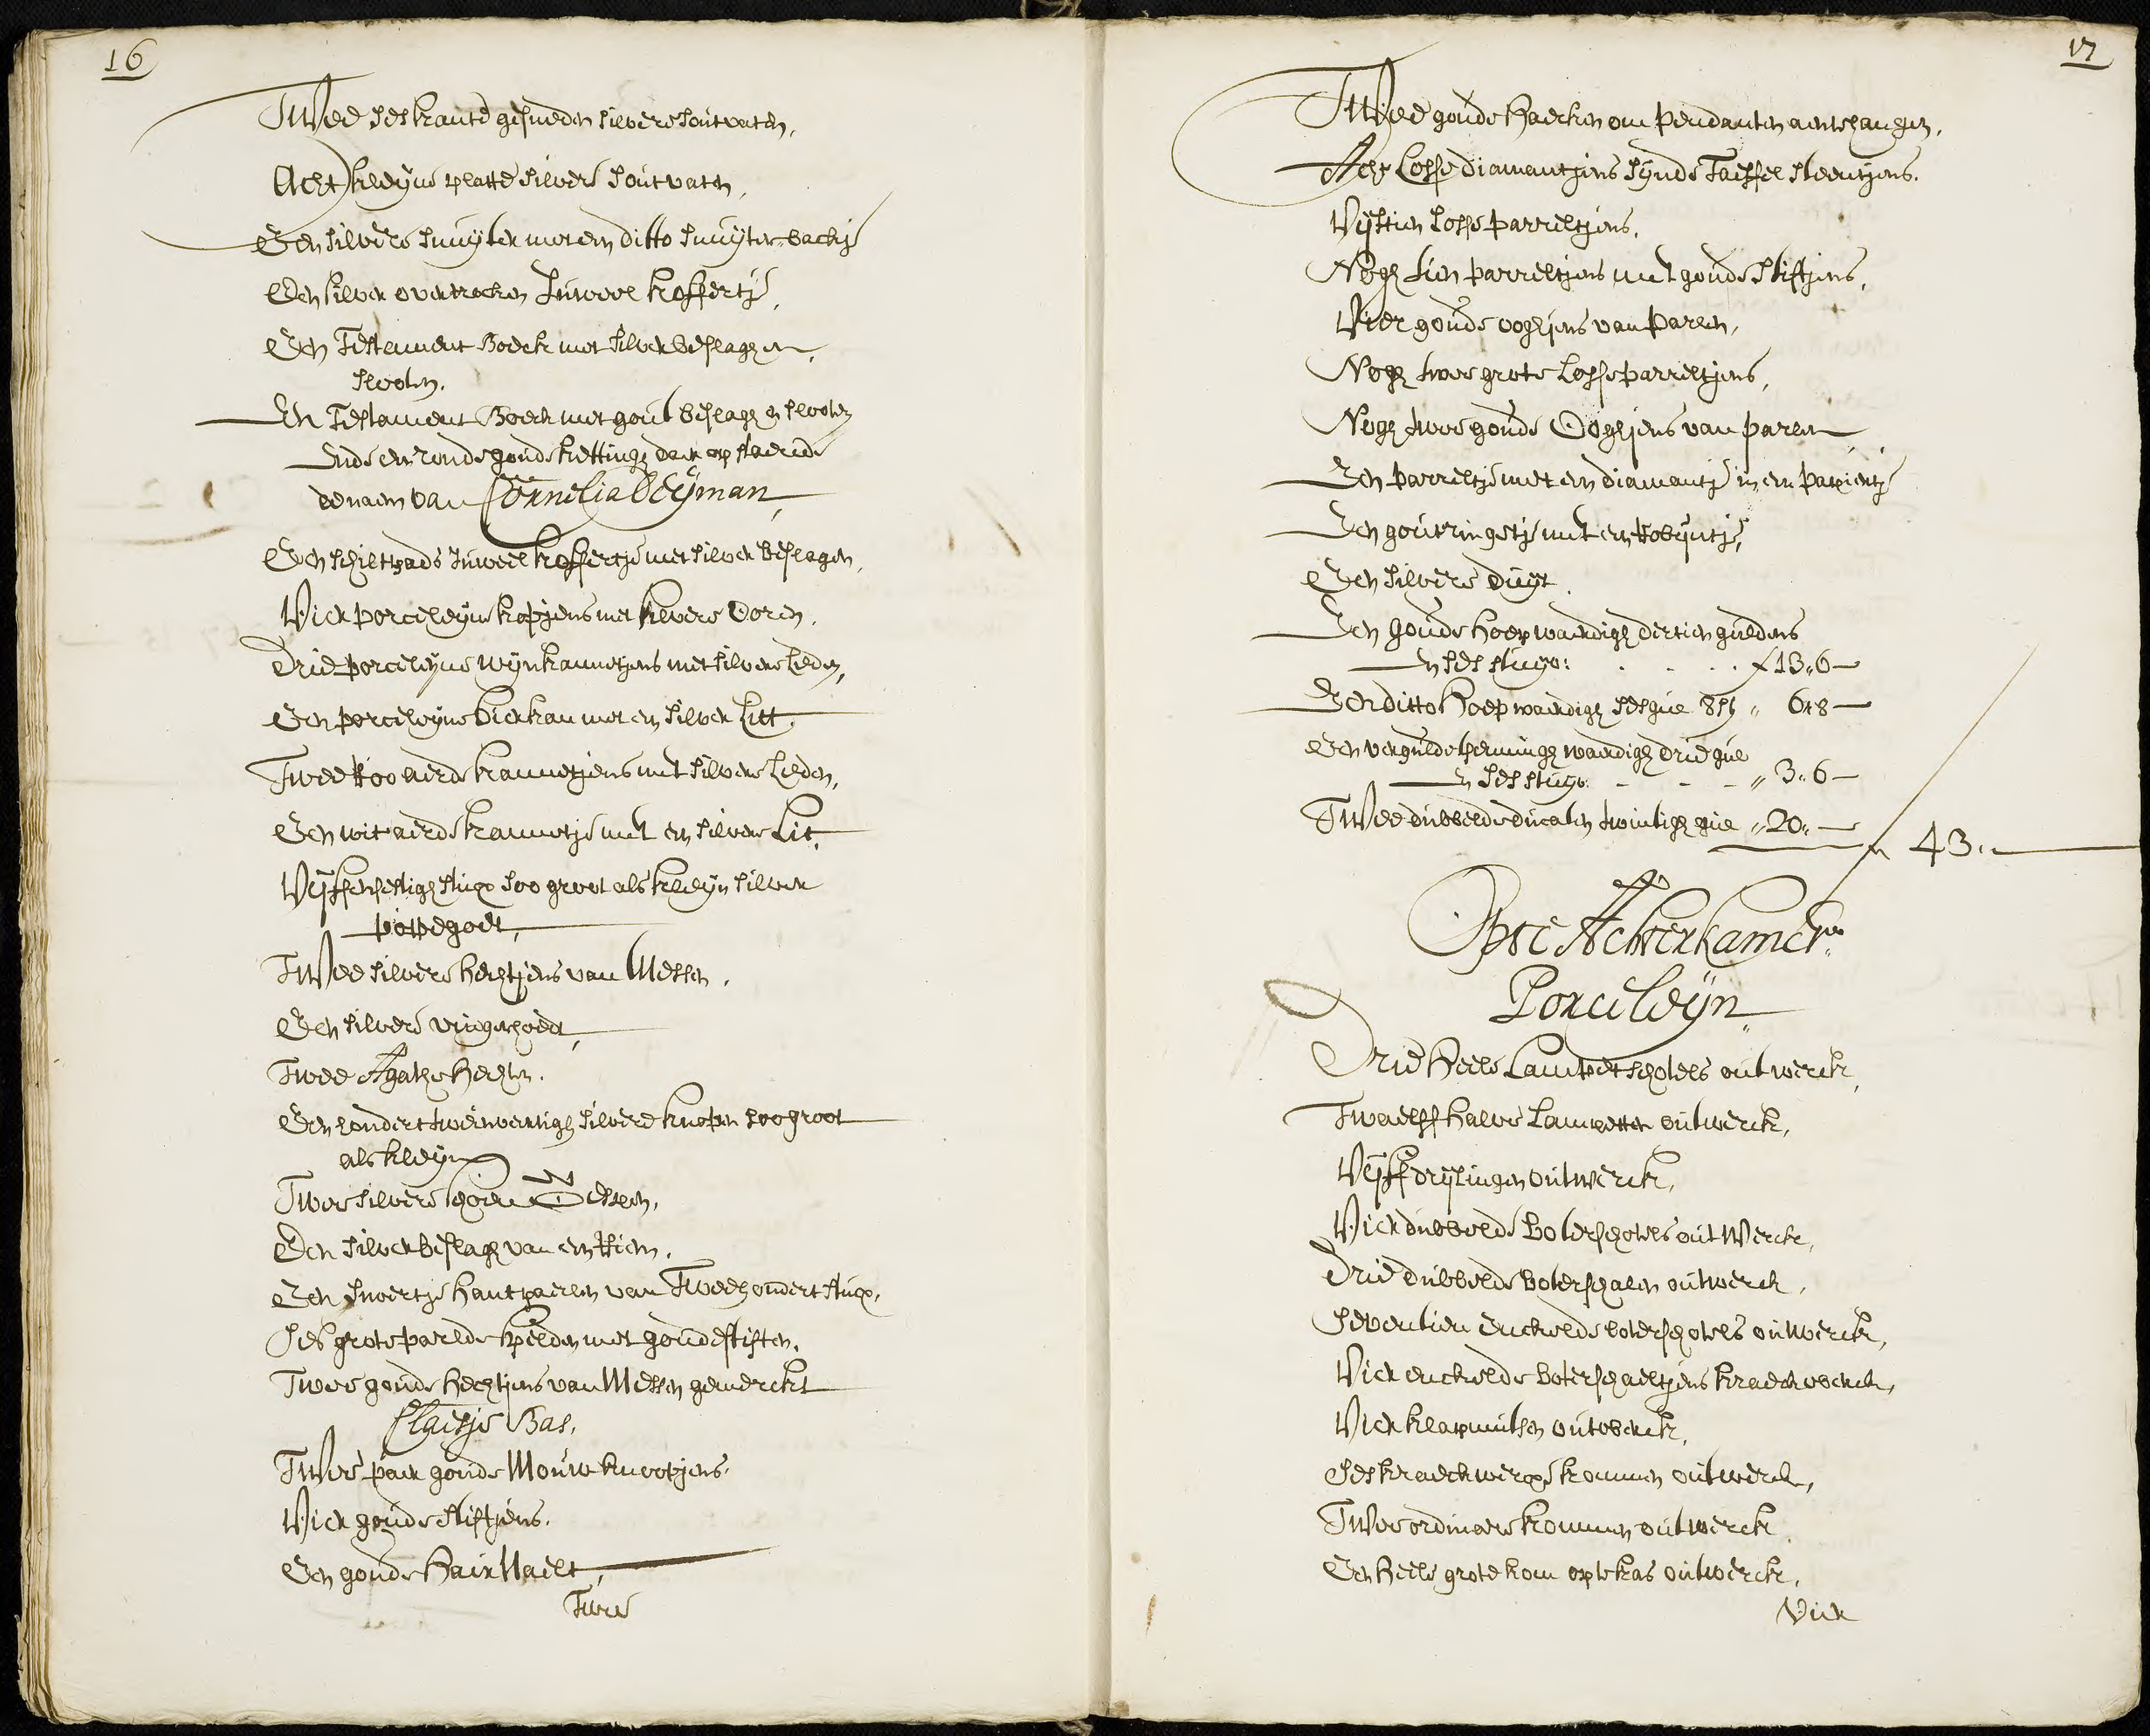 16
Twee seskante gesneden silvere soutvaten,
Acht kleyne platte silvere soutvaten,
Een silvere snuyter met een ditto snuyter-backje
Een silver overtrocken Juweel koffertje,
Een Testament Boeck met silver beslagh en
slooten.
Een Testament Boeck met gout beslagh en slooten
Ende een ronde goude kettingh daer op staende
de naem van Cornelia Veijman,
Een schiltpads Juweel koffertje met silver beslagen,
Vier porceleyne kopjens met silvere Ooren,
Drie porceleyne wynkannetjens met silvere Leden,
Een porceleyne bierkan met een silver Litt,
Twee Roo aerde kannetjens met silvere Leden,
Een wit aerde kannetje met een silvere Lit,
Vijffensestigh stux soo groot als kleyn silver
poppegoet,
Twee silvere hechtjens van Messen,
Een silvere vingerhoedt,
Twee Agathe Hechten.
Een hondert twee en veertigh silvere knopen soo groot
als kleyn
Twee silvere schoen Gespen,
Een silver beslagh van een Riem,
Een snoertje hantpaerlen van Twee hondert stux,
Ses grote paerlde spelden met goude stiften,
Twee goude hechtjens van Messen gemerckt
Claesje Bas,
Twee paer goude Mouw knoopjens,
Vier goude stiftjens,
Een goude Hair Naelt,
Twee
17
Twee goude Haecken om pendanten aen te hangen,
Acht Losse diamantjens synde Taeffel steentjens.
Vyftien Losse parreltjens,
Nogh tien parreltjens met goude stiftjens,
Vier goude ooghjens van Parlen,
Nogh twee grote Losse parreltjens,
Nogh twee goude Ooghjens van parlen
Een parreltje met een diamantje in een papiertje
Een gout ringetje met een Robyntje,
Een silvere duyt.
Een goude Hoep waerdigh dertien guldens
En ses stuyv: . . . . f 13,,6—
Een ditto Hoep waerdigh ses gul 8 st ,, 6,,8—
Een vergulde penningh waerdigh drie gul
En ses stuyv: - - - ,, 3,,6—
Twee dubbelde ducaten twintigh gul ,, 20,,—
43,,—
Opte Achterkamer
Porceleyn
Drie Heele Lampet schotels outwerck,
Twaelff halve Lampetten outwerck,
Vijff drylingen outwerck,
Vier dubbelde boterschotels outwerck,
Drie dubbelde boterschalen outwerck,
Seventien Enckelde boterschotels outwerck,
Vier enckelde boterschaeltjens kraeckwerck,
Vier klapmutsen outwerck,
Ses kraeckwercxe kommen outwerck,
Twee ordinare kommen outwerck
Een heele grote kom op te kas outwerck,
Vier